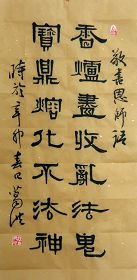 恩師語
香爐盡收亂法鬼
寶鼎熔化不法神
時於辛卯春日